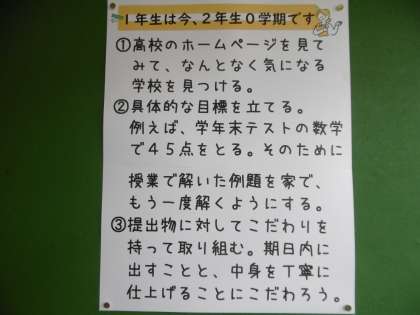 1年生は今、2年生0学期です
①高校のホームページを見て
みて、なんとなく気になる
学校を見つける。
②具体的な目標を立てる。
例えば、学年末テストの数学
で45点をとる。そのために
授業で解いた例題を家で、
もう一度解くようにする。
③提出物に対してこだわりを
持って取り組む。期日内に
出すことと、中身を丁寧に
仕上げることにこだわろう。